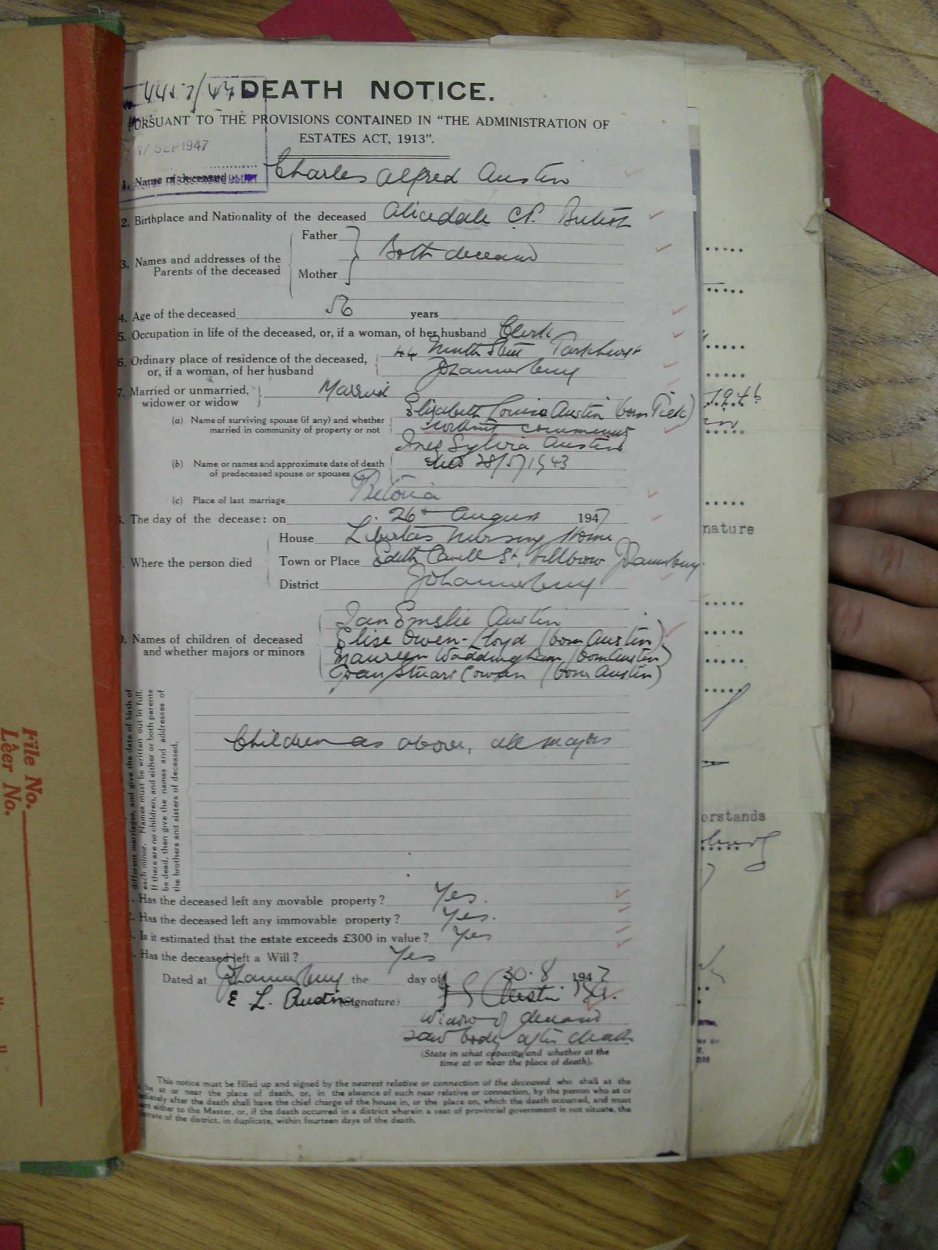 4457/47 DEATH NOTICE.
PURSUANT TO THE PROVISIONS CONTAINED IN "THE ADMINISTRATION OF
ESTATES ACT, 1913".
17 SEP 1947
1. Name of deceased Charles Alfred Austin
2. Birthplace and Nationality of the deceased Alicedale C.P. British
Father
3. Names and addresses of the Parents of the deceased Both deceased
Mother
4. Age of the deceased 56 years
5. Occupation in life of the deceased, or, if a woman, of her husband Clerk
6. Ordinary place of residence of the deceased, 44 Ninth Street Parkhurst
or, if a woman, of her husband Johannesburg
7. Married or unmarried, widower or widow Married
1946
Elizabeth Louisa Austin (born
(a) Name of surviving spouse (if any) and whether married in community of property or not without community
Inez Sylvia Austin
(b) Name or names and approximate date of death of predeceased spouse or spouses died 28/5/1943
(c) Place of last marriage Pretoria
The day of the decease: on 26th August 1947
House Libertas Nursing Home
Where the person died Town or Place Edith Cavell St. Hillbrow Johannesburg
District Johannesburg
nature
Ian Emslie Austin
Names of children of deceased Elise Owen-Lloyd (born Austin)
and whether majors or minors Maureen Waddingham (born Austin)
Joan Stuart Cowan (born Austin)
different marriages, and give the date of birth of
each minor. Names must be written out in full.
If there are no children, and either or both parents
be dead, then give the names and addresses of
the brothers and sisters of deceased.
File No.
Lêer No.
Children as above, all majors
erstands
Has the deceased left any movable property? Yes.
Has the deceased left any immovable property? Yes.
Is it estimated that the estate exceeds £300 in value? Yes
Has the deceased left a Will? Yes
Dated at Johannesburg the day of 30.8 1947
E L. Austin (Signature)
widow of deceased
saw body after death
(State in what capacity and whether at the
time at or near the place of death).
This notice must be filled up and signed by the nearest relative or connection of the deceased who shall at the
be at or near the place of death, or, in the absence of such near relative or connection, by the person who at or
ediately after the death shall have the chief charge of the house in, or the place on, which the death occurred, and must
sent either to the Master, or, if the death occurred in a district wherein a seat of provincial government is not situate, the
trate of the district, in duplicate, within fourteen days of the death.